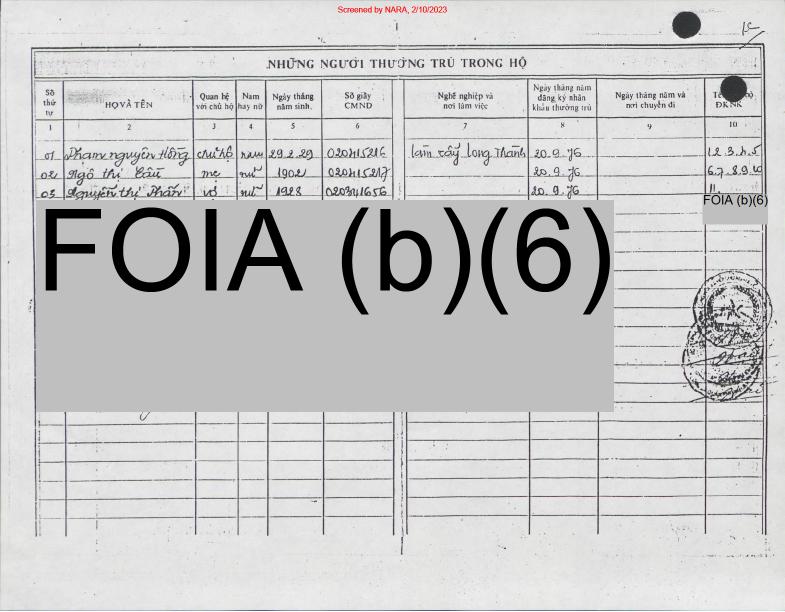 Screened by NARA, 2/10/2023
NHỮNG NGƯỜI THƯỜNG TRÚ TRONG HỘ
Số thứ tự HỌ VÀ TÊN Quan hệ với chủ hộ Nam hay nữ Ngày tháng năm sinh Số giấy CMND Nghề nghiệp và nơi làm việc Ngày tháng năm đăng ký nhân khẩu thường trú Ngày tháng năm và nơi chuyển đi ĐKNK
1 2 3 4 5 6 7 8 9 10
01 Phạm nguyên Hồng chủ hộ nam 29.2.29 020415216 làm rẫy Long Thành 20.9.76 1.2.3.4.5
02 Ngô thị mẹ nữ 1902 020415217 20.9.76 6.7.8.9.10
03 Nguyễn thị vợ nữ 1928 020341656 20.9.76 11.
FOIA (b)(6)
FOIA (b)(6)